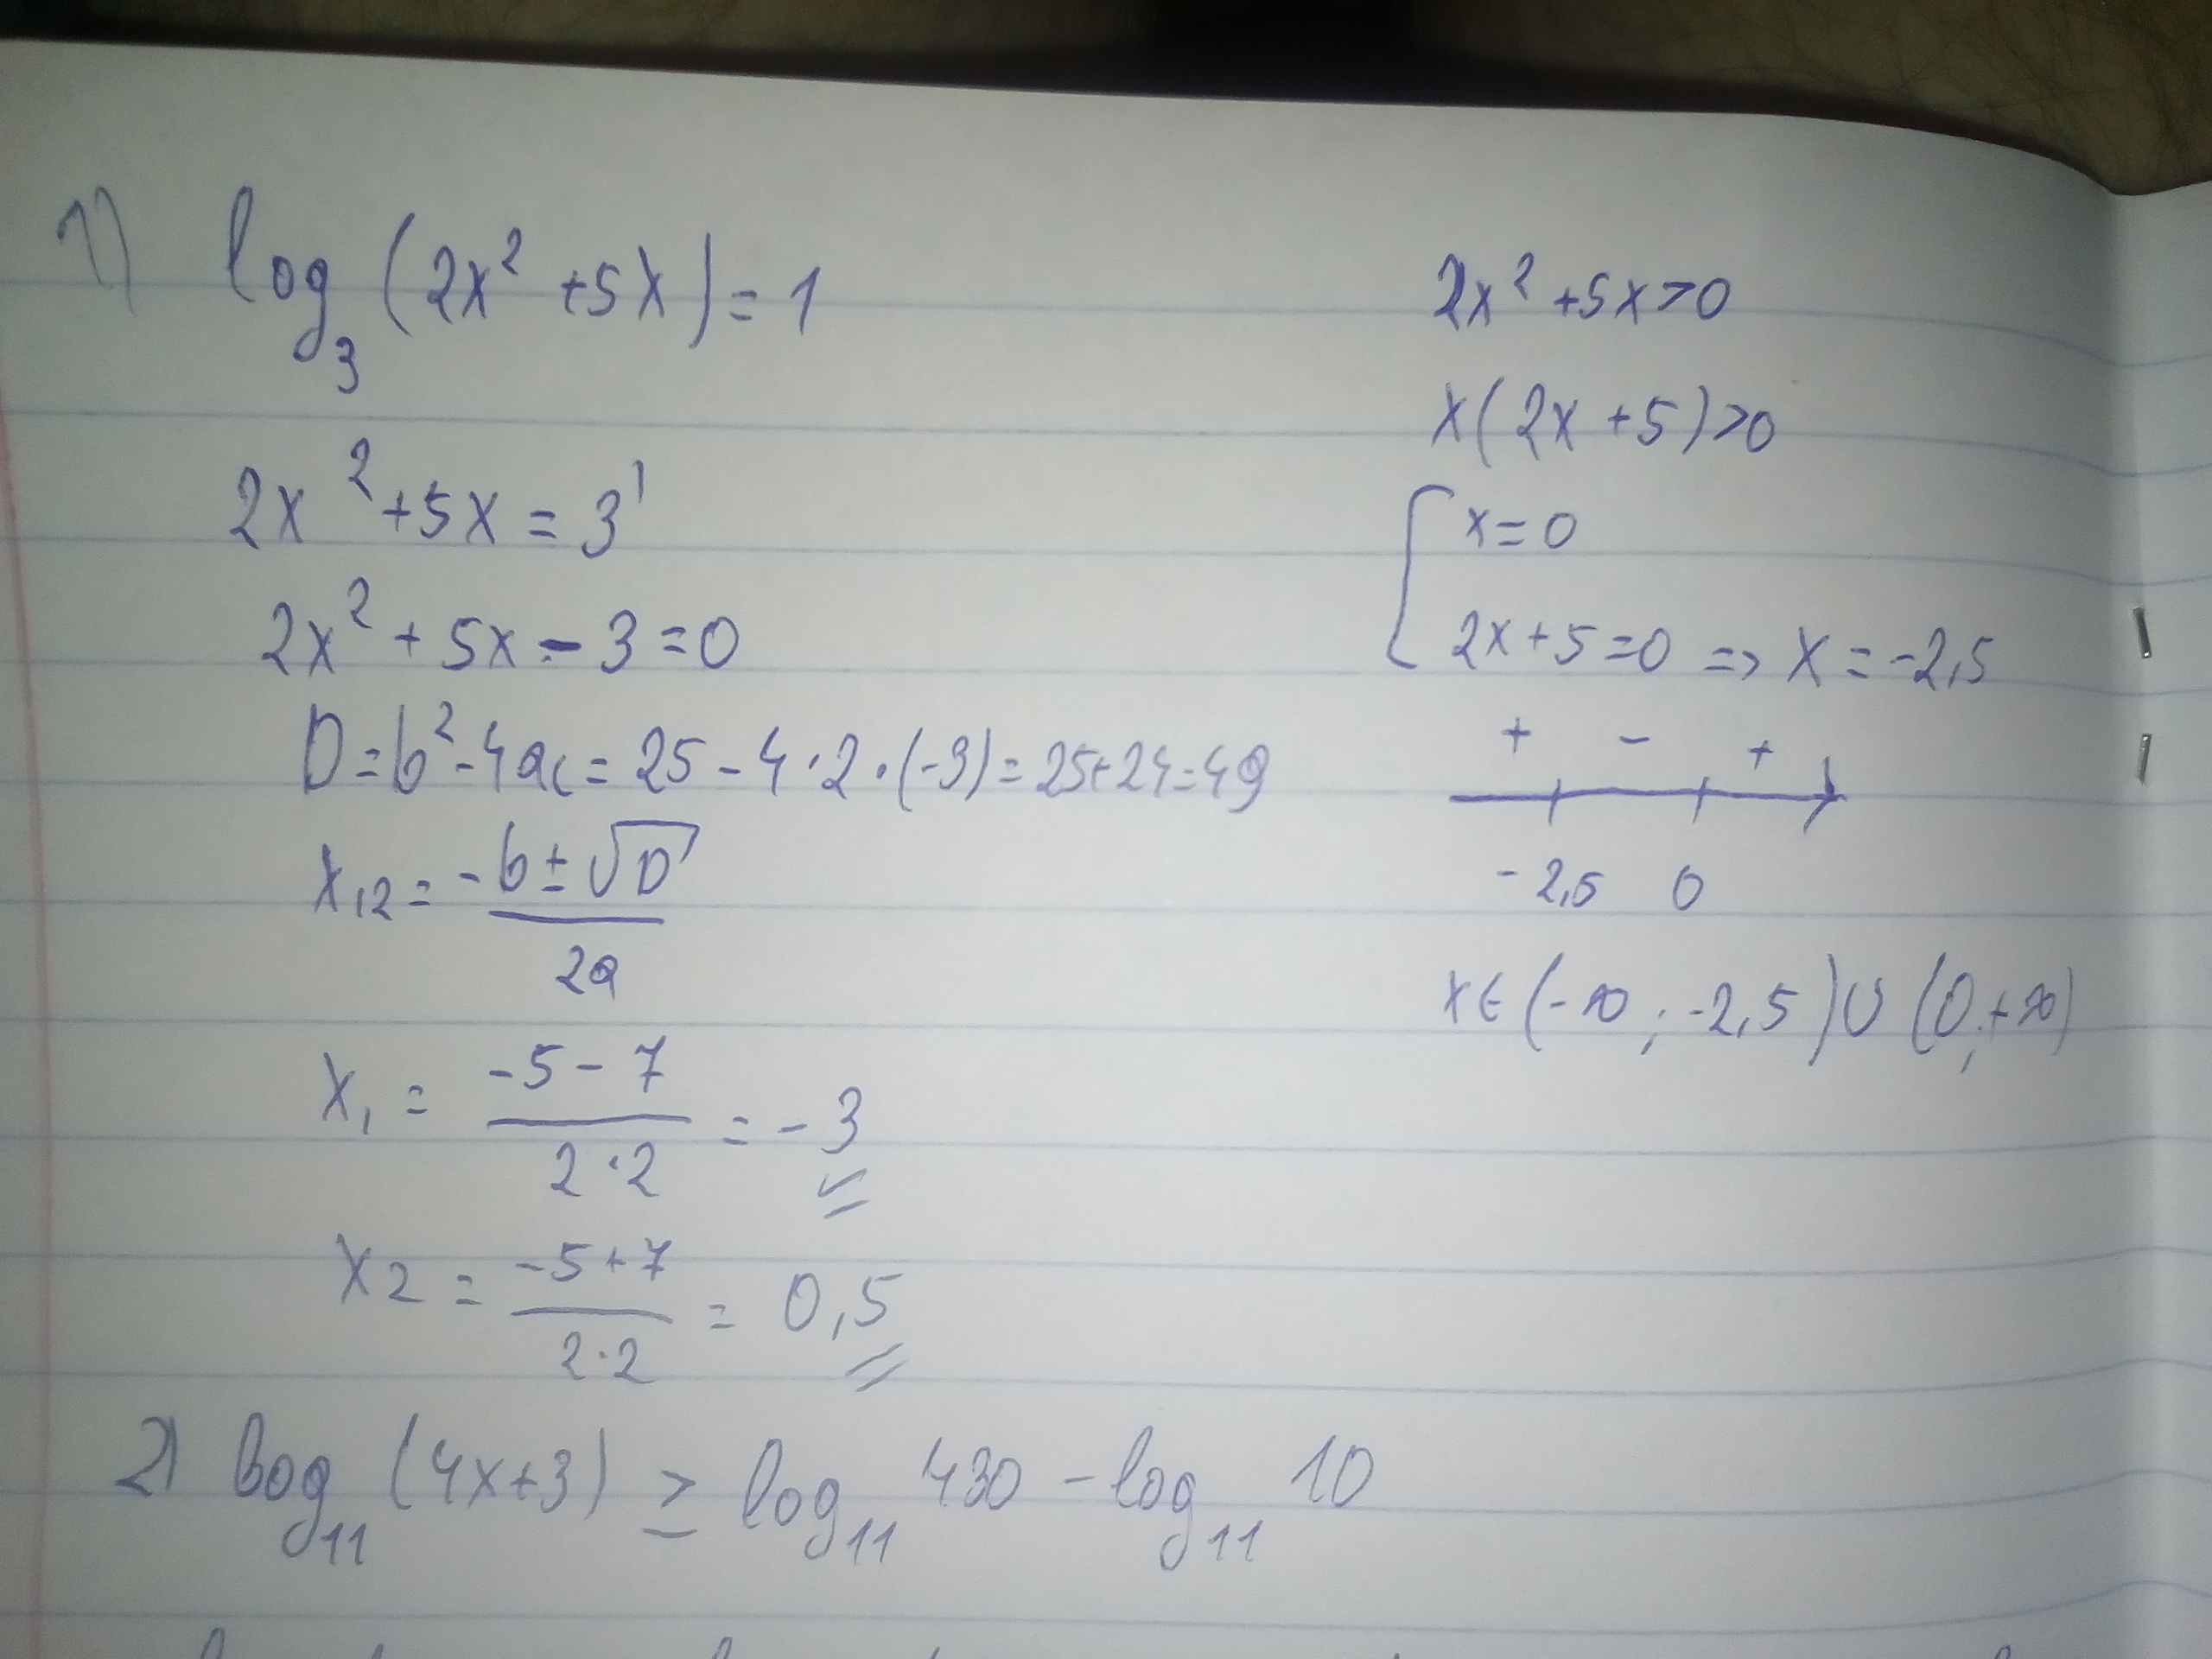 1) log₃ (2x² + 5x) = 1
2x² + 5x = 3¹
2x² + 5x - 3 = 0
D = b² - 4ac = 25 - 4 · 2 · (-3) = 25 + 24 = 49
x₁,₂ = (-b ± √D) / 2a
x₁ = (-5 - 7) / (2 · 2) = -3
x₂ = (-5 + 7) / (2 · 2) = 0,5
2x² + 5x > 0
x(2x + 5) > 0
[ x = 0
2x + 5 = 0 => x = -2,5
+ - +
-2,5 0
x ∈ (-∞ ; -2,5) ∪ (0 ; +∞)
2) log₁₁ (4x + 3) ≥ log₁₁ 430 - log₁₁ 10